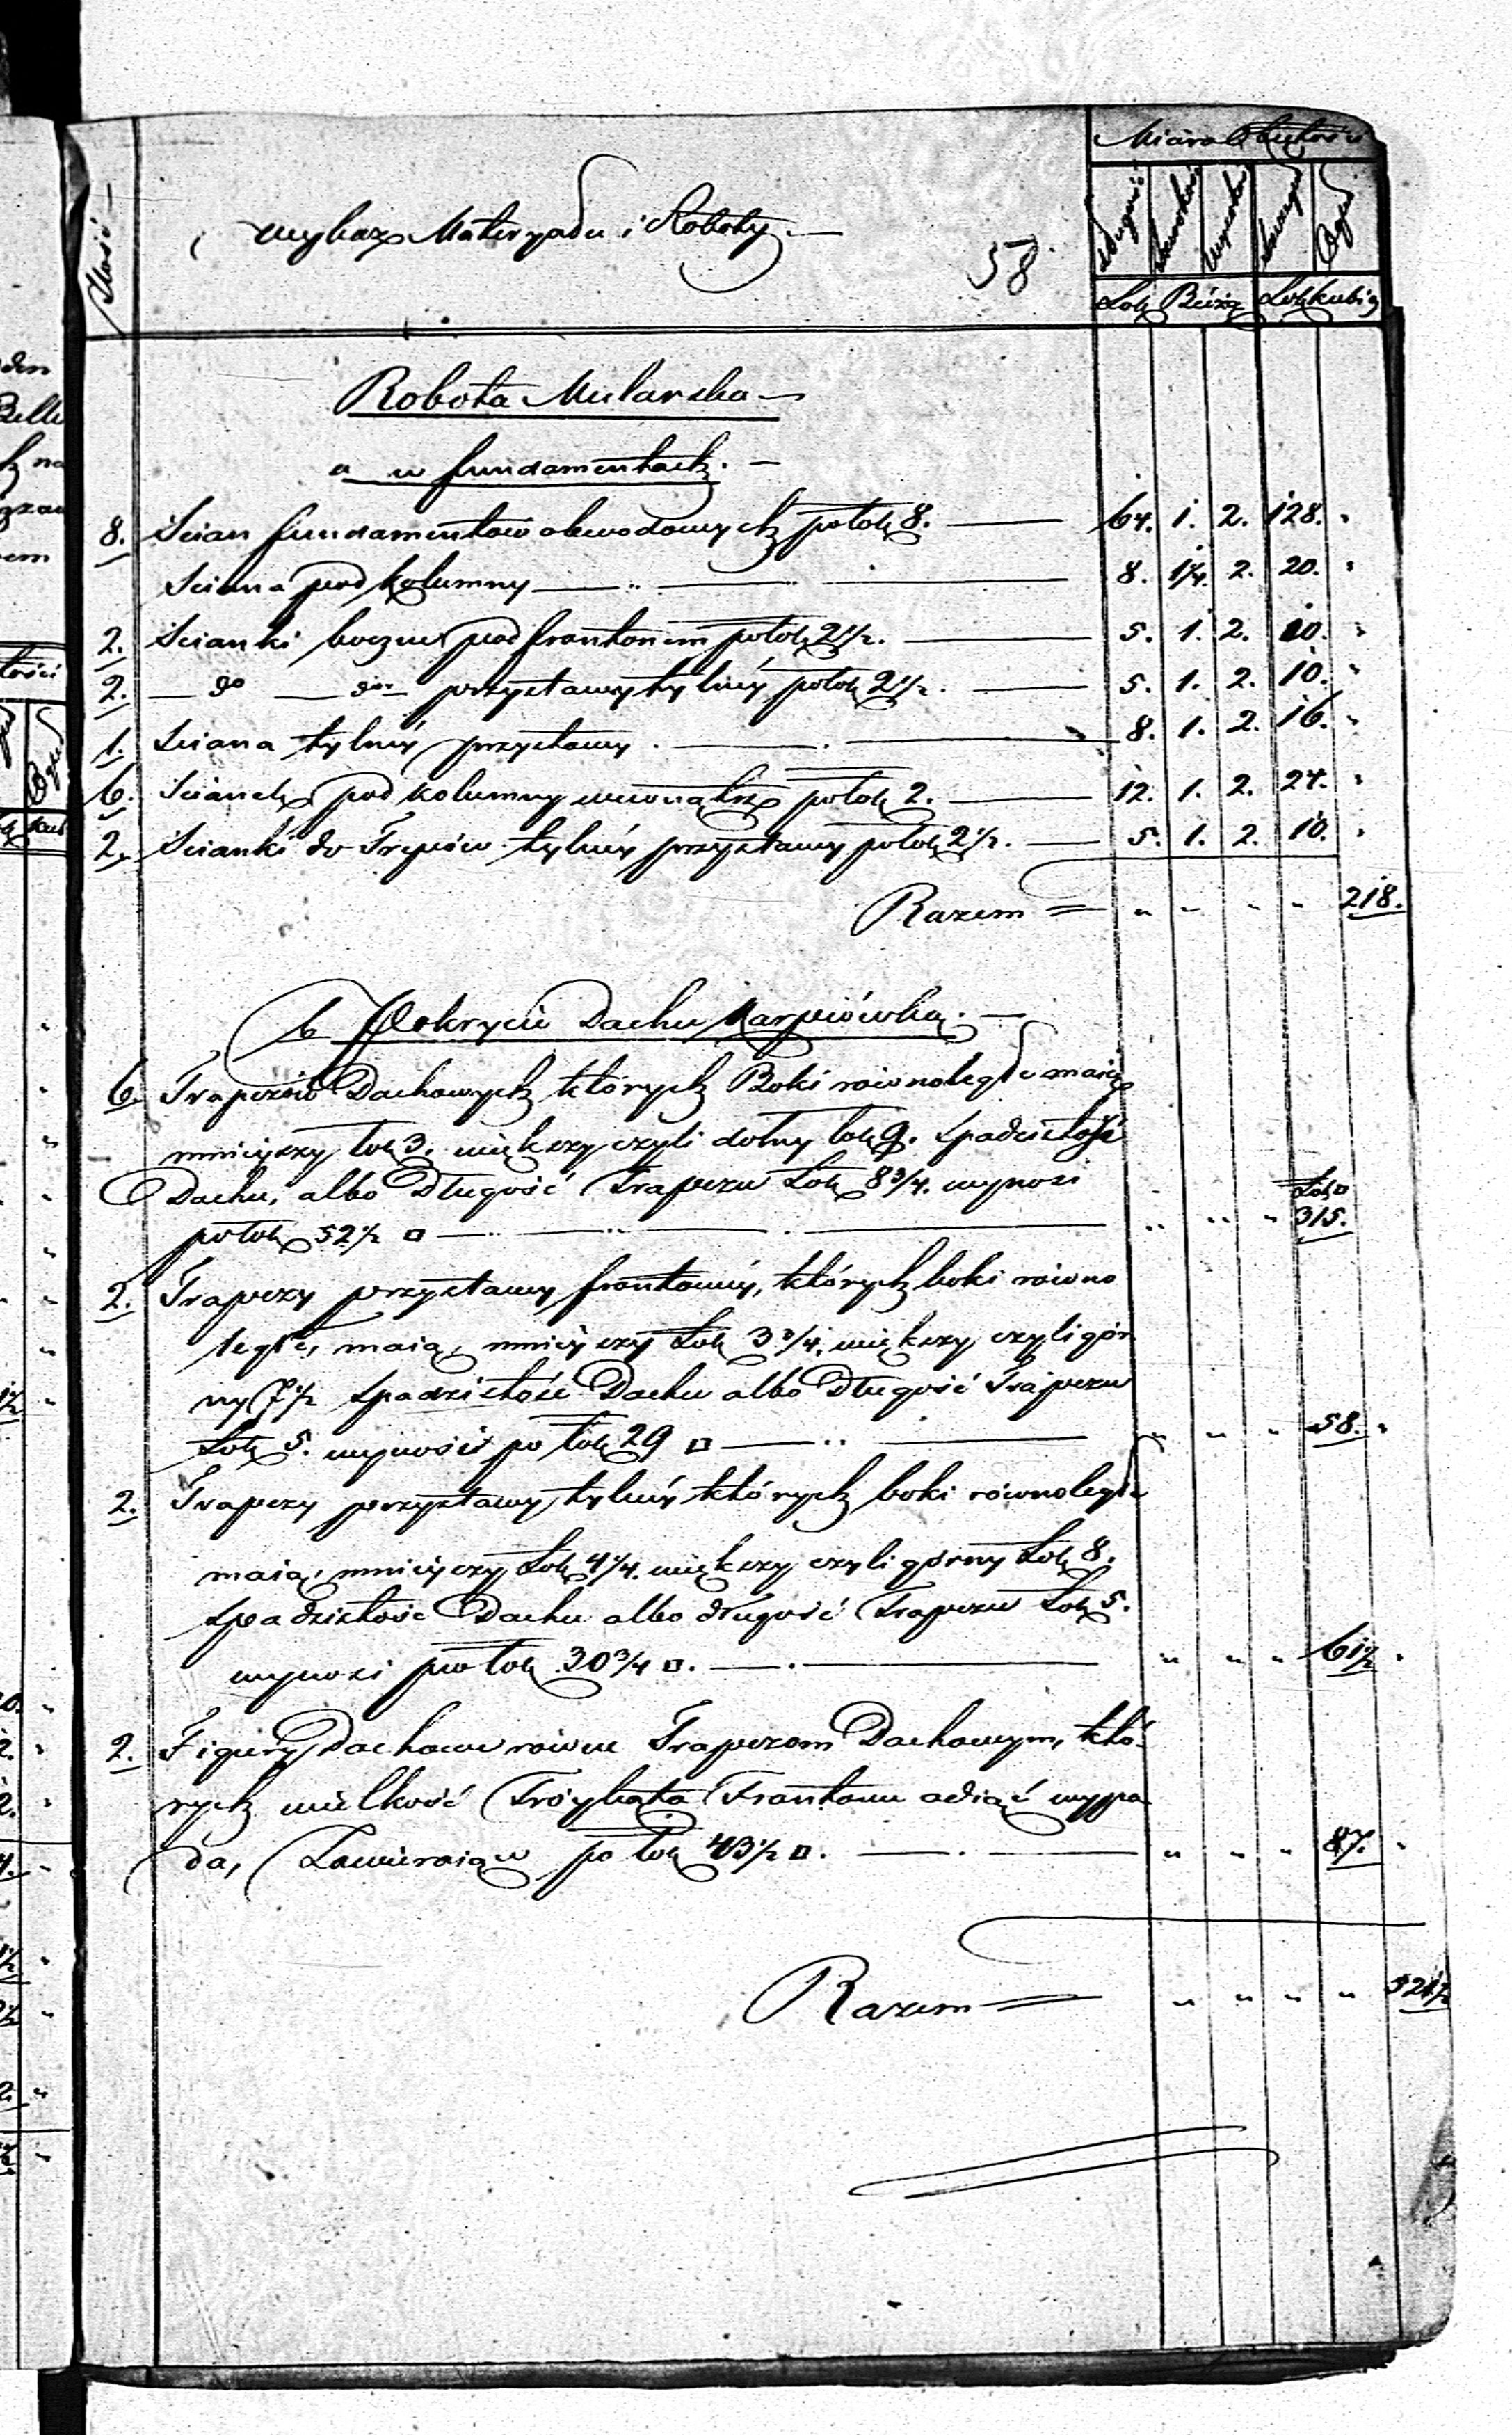 Miara Obiętości
Ilość
Wykaz Materyału i Roboty. —
58.
Długość Szerokość Wysokość Szczegół Ogół
Łok: Bieżą: Łok: kubicz:
Robota Mularska —
a w fundamentach. —
8. Scian fundamentow obwodowych po łok: 8. — 64. 1. 2. 128. "
Sciana pod kolumny — 8. 1¼. 2. 20. "
2. Scianki boczne pod frontonem po łok: 2½. — 5. 1. 2. 10. "
2. — do — do — przystawy tylnéy po łok: 2½. — 5. 1. 2. 10. "
1. Sciana tylnéy przystawy. — 8. 1. 2. 16. "
6. Scianek pod kolumny wewnątrz po łok: 2. — 12. 1. 2. 24. "
2. Scianki do Trepów tylnéy przystawy po łok: 2½. — 5. 1. 2. 10. "
Razem = " " " " 218.
b Pokrycie Dachu Karpiówką. —
6. Trapezów Dachowych których Boki równoległe maią
mnieyszy łok: 3. większy czyli dolny łok: 9. spadzistość
Dachu, albo Długość Trapezu Łok: 8¾. wynosi
po łok: 52½ □ — " " " Łok: □ 315.
2. Trapezy przystawy frontowéy, których boki równo
ległe, maią, mnieyszy Łok: 3¾, większy czyli gór
ny 7½ spadzistość Dachu albo Długość Trapezu
Łok: 5. wynosi po łok: 29 □ — " " " 58. "
2. Trapezy przystawy tylnéy których boki równoległe
maią, mnieyszy Łok: 4¼. większy czyli górny Łok: 8.
spadzistość Dachu albo długość Trapezu Łok: 5.
wynosi po łok: 30¾ □. — " " " 61½ "
2. Figury dachowe równe Trapezom Dachowym, któ-
rych wielkość Tróykąta Frontonu odiąć wypa
da, Zawieraią po łok: 43½ □. — " " " 87. "
Razem = " " " " 521½